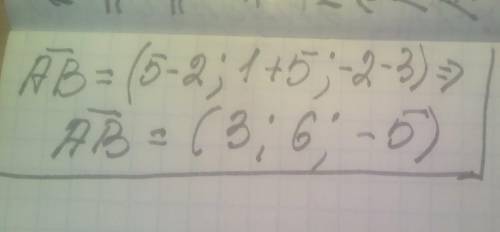 A̅B̅ = (5-2; 1+5; -2-3) ⇒
A̅B̅ = (3; 6; -5)